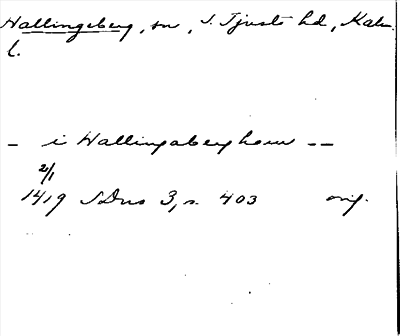 Hallingeberg, sn, S. Tjusts hd, Kalm.
l.
– i Hallingabergh som – –
2/1
1419 SDns 3, s. 403 orig.